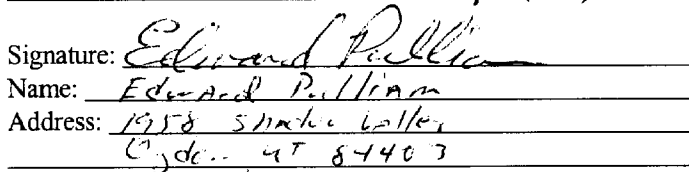 Signature: Edward Pulliam
Name: Edward Pulliam
Address: 1958
Ogden UT 84403